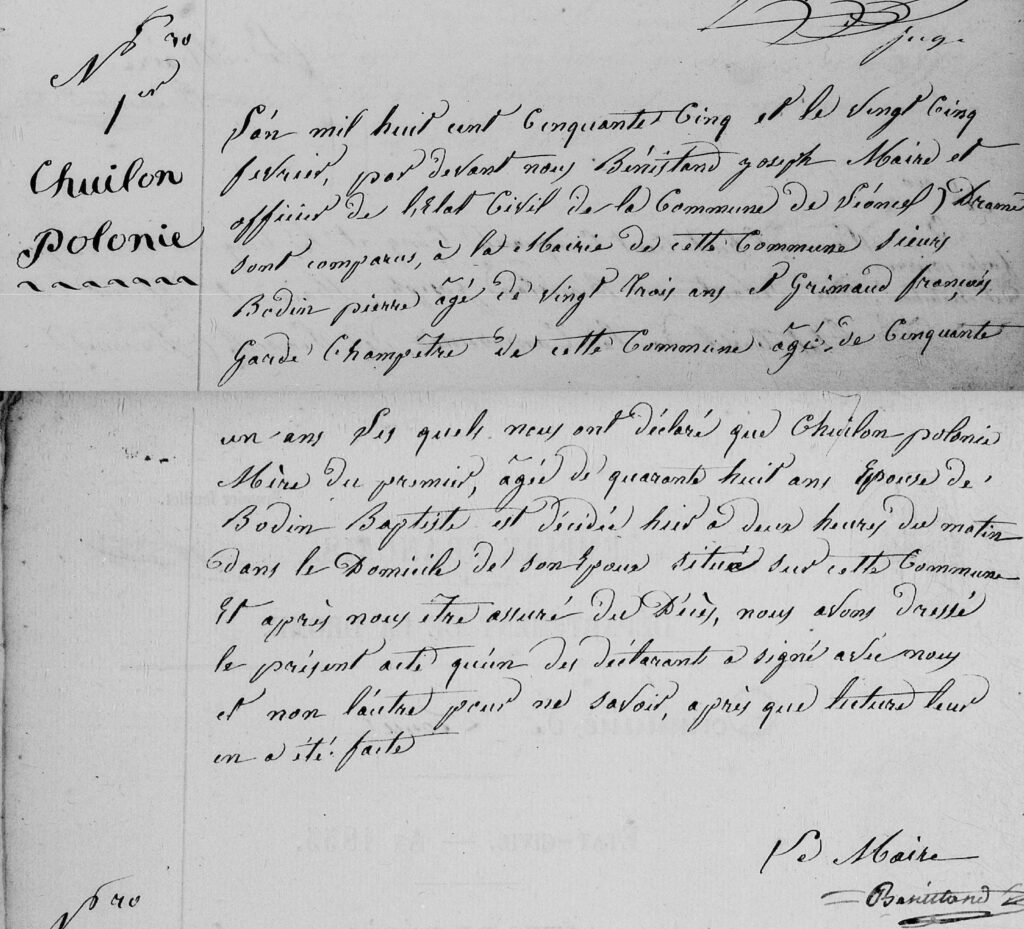 jug.
N.ro
1er
Chuilon
polonie
L'an mil huit cent Cinquante Cinq et le vingt Cinq
fevrier, par devant nous Bénistand Joseph Maire et
officier de l'Etat Civil de la Commune de Léoncel) Drome
sont comparus, à la Mairie de cette Commune sieurs
Bodin pierre âgé de vingt trois ans et Grimaud françois
Garde Champêtre de cette Commune âgé de Cinquante
un ans Les quels nous ont déclaré que Chuilon polonie
Mère du premier, âgée de quarante huit ans Epouse de
Bodin Baptiste est décédée hier à deux heures du matin
dans le Domicile de son Epoux situé sur cette Commune
Et après nous être assuré du Décès, nous avons dressé
le présent acte qu'un des déclarants a signé avec nous
et non l'autre pour ne savoir, après que lecture leur
en a été faite
Le Maire
Bénistand
N.ro